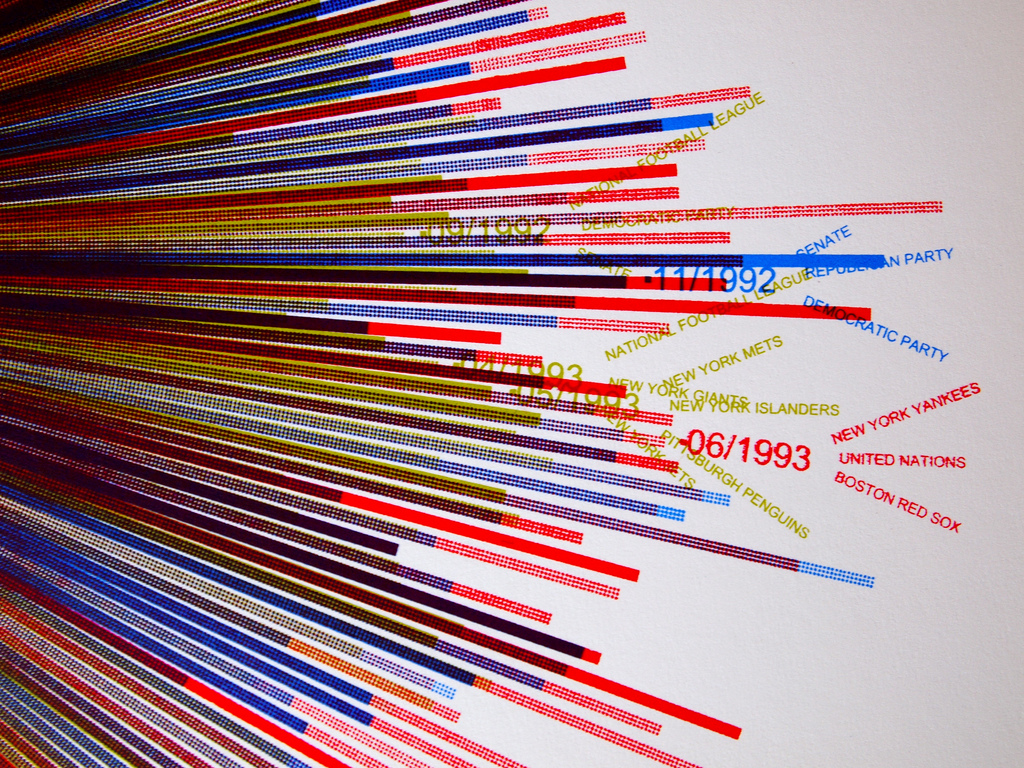 NATIONAL FOOTBALL LEAGUE
-09/1992
DEMOCRATIC PARTY
SENATE
-11/1992
SENATE
REPUBLICAN PARTY
DEMOCRATIC PARTY
NATIONAL FOOTBALL LEAGUE
-04/1993
NEW YORK METS
NEW YORK GIANTS
NEW YORK ISLANDERS
-05/1993
NEW YORK METS
PITTSBURGH PENGUINS
-06/1993
NEW YORK YANKEES
UNITED NATIONS
BOSTON RED SOX